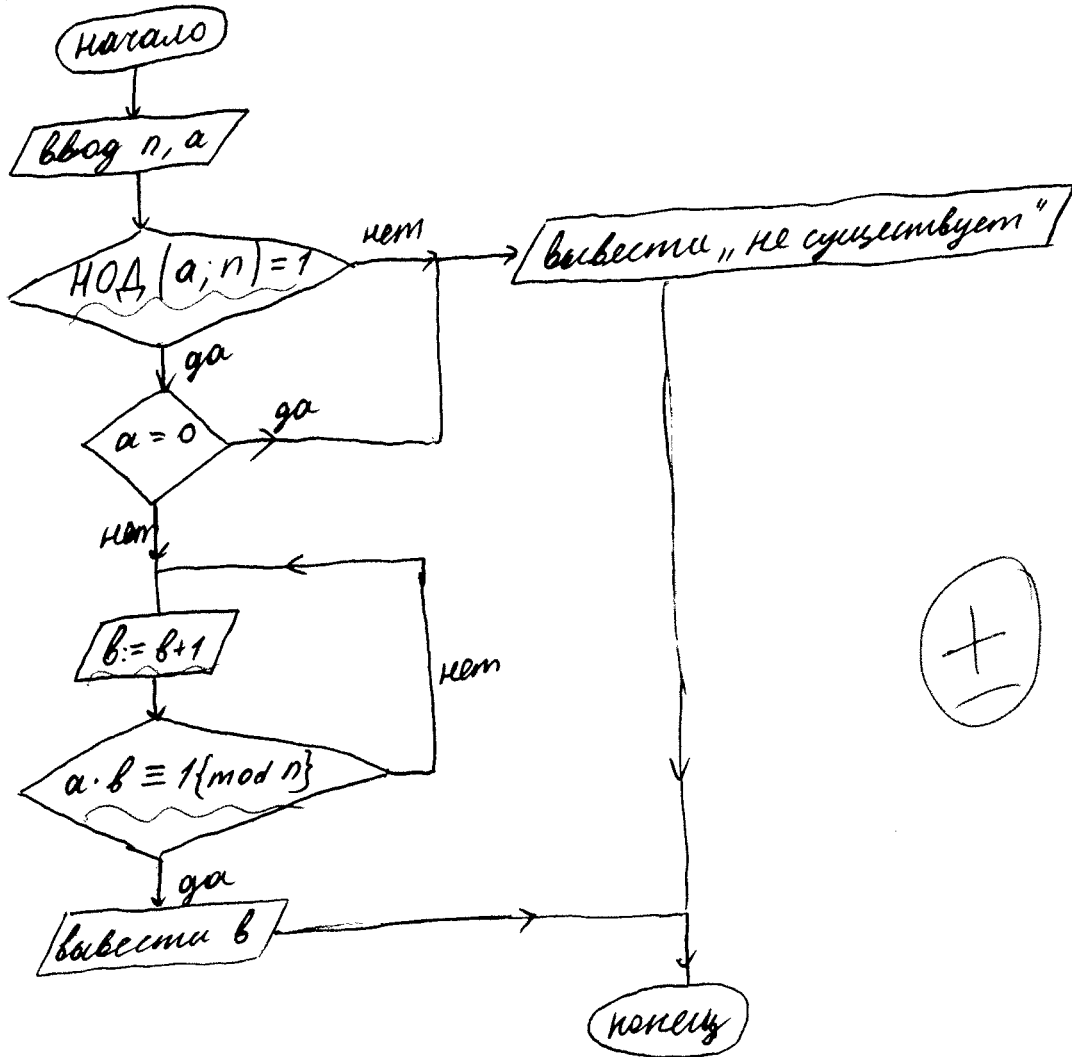 начало
ввод n, a
НОД (a; n) = 1
нет
вывести „не существует“
да
a = 0
да
нет
в := в+1
нет
a · в ≡ 1{mod n}
да
вывести в
конец
+